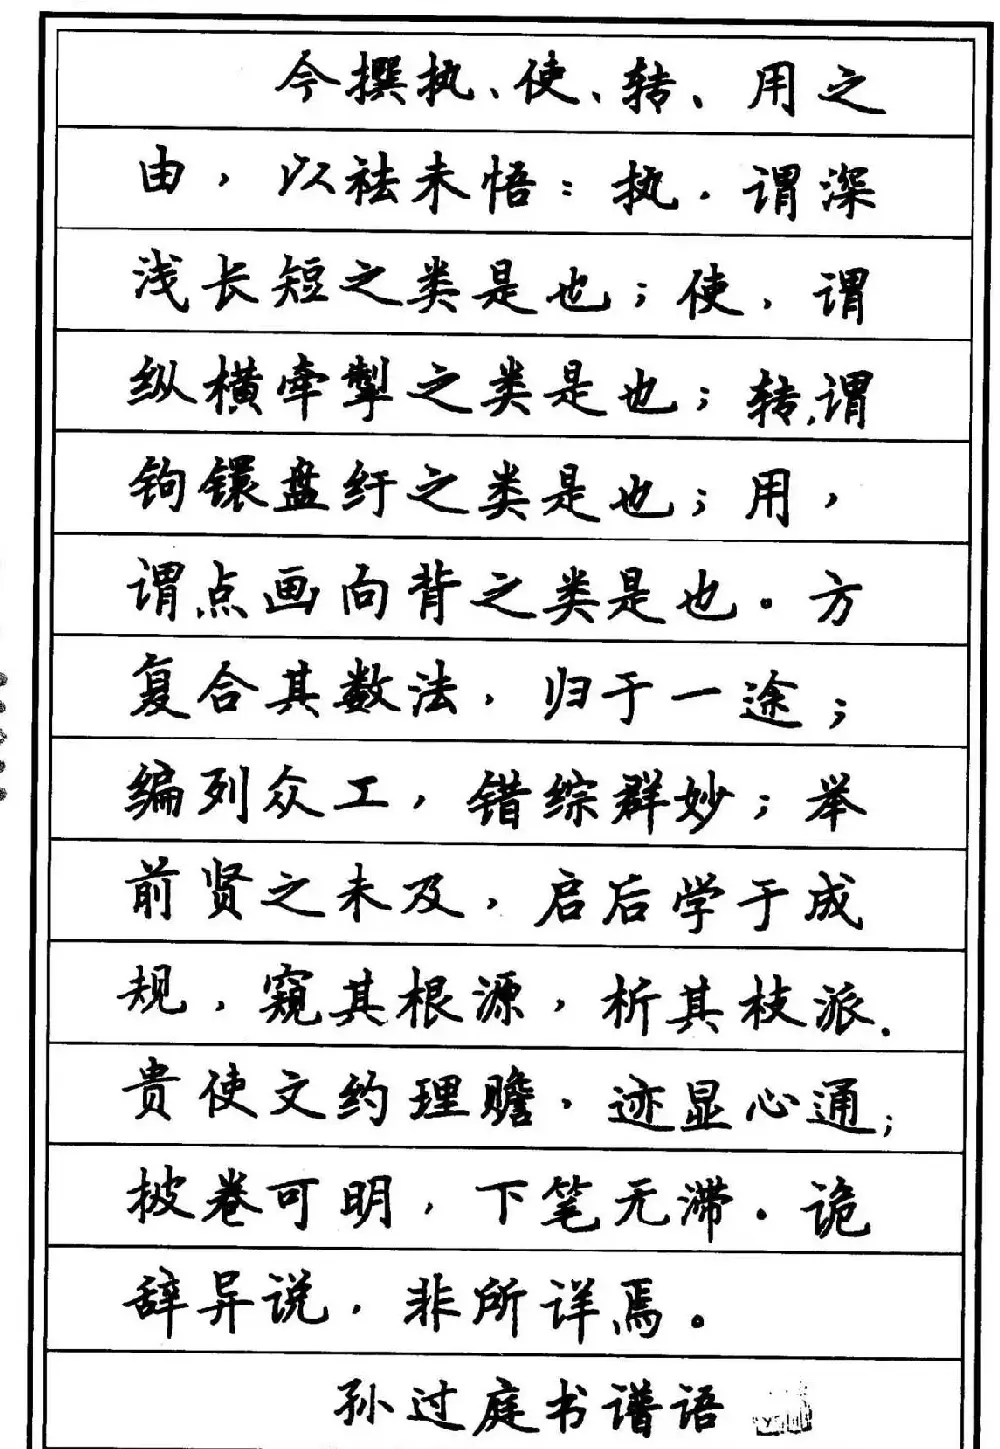 今撰执、使、转、用之
由，以祛未悟：执，谓深
浅长短之类是也；使，谓
纵横牵掣之类是也；转，谓
钩镮盘纡之类是也；用，
谓点画向背之类是也。方
复合其数法，归于一途；
编列众工，错综群妙；举
前贤之未及，启后学于成
规，窥其根源，析其枝派。
贵使文约理赡，迹显心通；
披卷可明，下笔无滞。诡
辞异说，非所详焉。
孙过庭书谱语